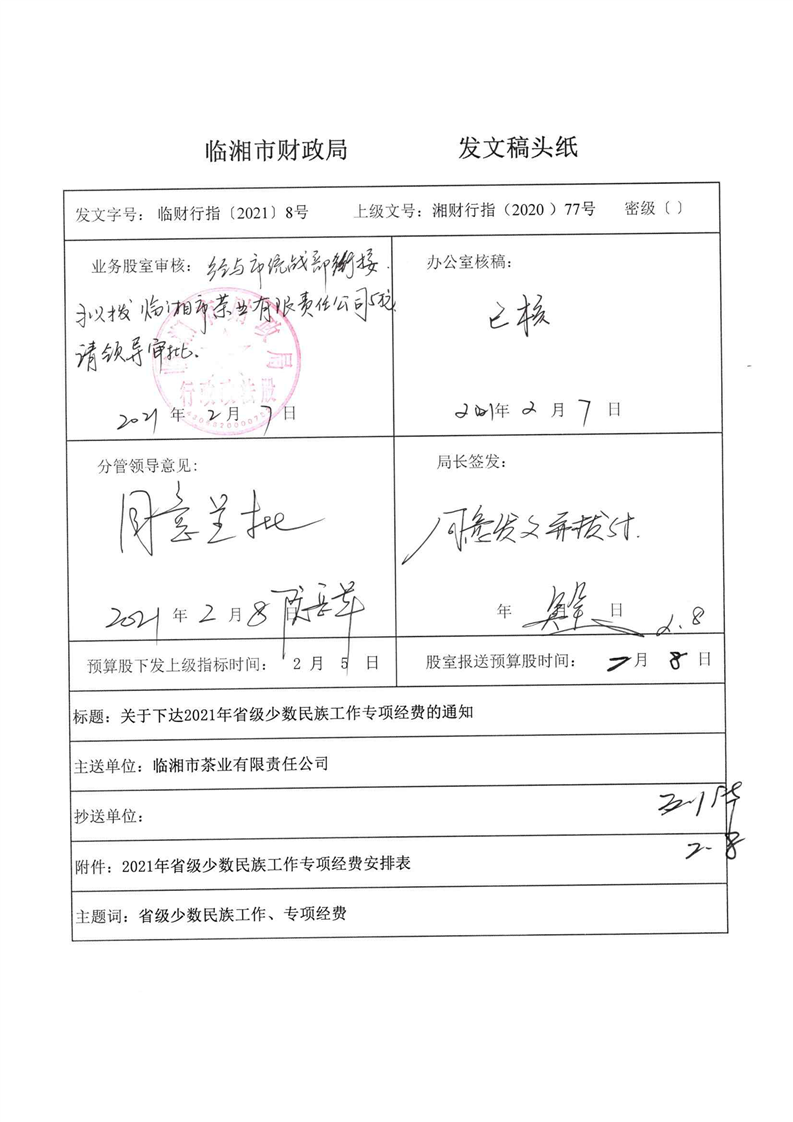 临湘市财政局 发文稿头纸
发文字号： 临财行指〔2021〕8号 上级文号：湘财行指（2020 ）77号 密级〔 〕
业务股室审核：经与市统战部衔接.
拟拨临湘市茶业有限责任公司5
请领导审批.
行政政法股
2021 年 2 月 7 日
办公室核稿：
已核
2021年 2 月 7 日
分管领导意见:
同意呈批
2021 年 2 月 8 日
局长签发：
同意发文并拨付.
年 月 日
2.8
预算股下发上级指标时间： 2 月 5 日
股室报送预算股时间： 2月 8 日
标题：关于下达2021年省级少数民族工作专项经费的通知
主送单位：临湘市茶业有限责任公司
抄送单位：
2.8
附件：2021年省级少数民族工作专项经费安排表
主题词：省级少数民族工作、专项经费